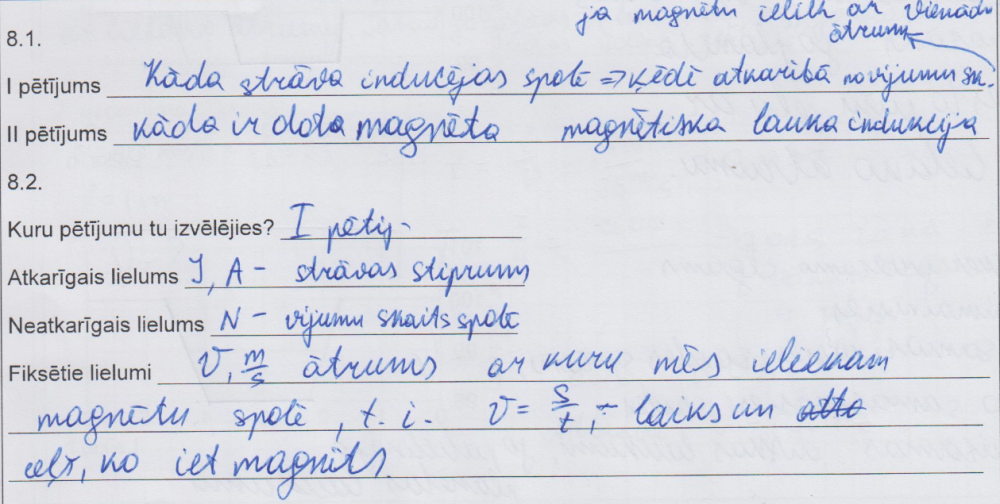 ja magnētu ieliek ar vienādu
ātrumu
8.1.
I pētījums Kāda strāva inducējas spolē => ķēdē atkarībā no vijumu sk.
II pētījums kāda ir dota magnēta magnētiska lauka indukcija
8.2.
Kuru pētījumu tu izvēlējies? I pētīj.
Atkarīgais lielums I, A - strāvas stiprums
Neatkarīgais lielums N - vijumu skaits spolē
Fiksētie lielumi v, m/s ātrums ar kuru mēs ieliekam
magnētu spolē, t. i. v = s/t, - laiks un
ceļš, ko iet magnēts